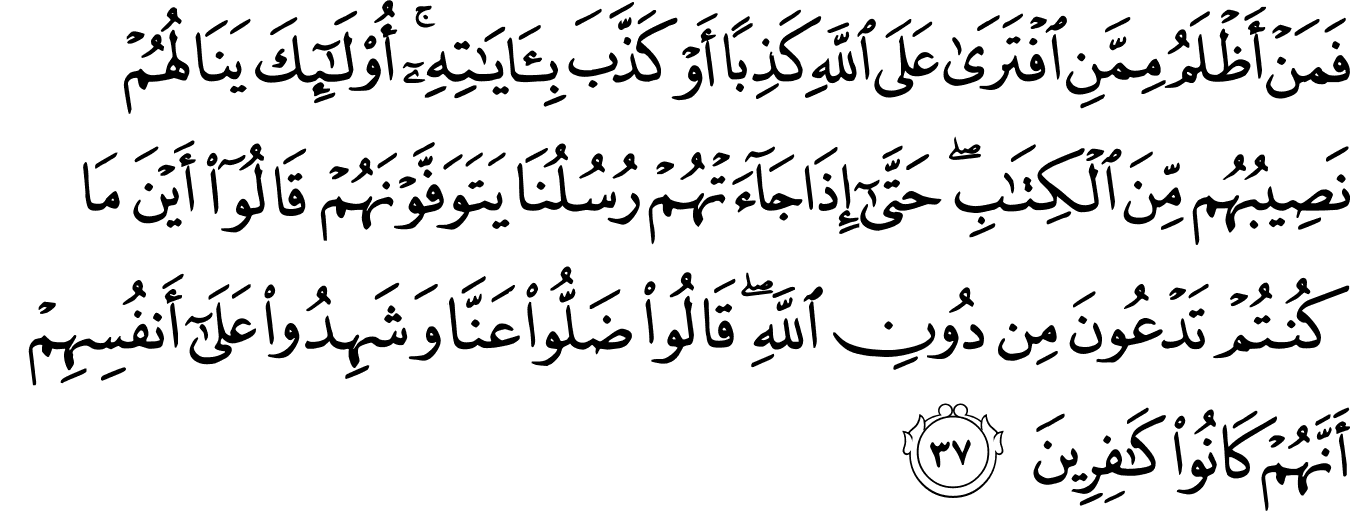 فَمَنْ أَظْلَمُ مِمَّنِ ٱفْتَرَىٰ عَلَى ٱللَّهِ كَذِبًا أَوْ كَذَّبَ بِـَٔايَـٰتِهِۦٓ ۚ أُو۟لَـٰٓئِكَ يَنَالُهُمْ
نَصِيبُهُم مِّنَ ٱلْكِتَـٰبِ ۖ حَتَّىٰٓ إِذَا جَآءَتْهُمْ رُسُلُنَا يَتَوَفَّوْنَهُمْ قَالُوٓا۟ أَيْنَ مَا
كُنتُمْ تَدْعُونَ مِن دُونِ ٱللَّهِ ۖ قَالُوا۟ ضَلُّوا۟ عَنَّا وَشَهِدُوا۟ عَلَىٰٓ أَنفُسِهِمْ
أَنَّهُمْ كَانُوا۟ كَـٰفِرِينَ ٣٧